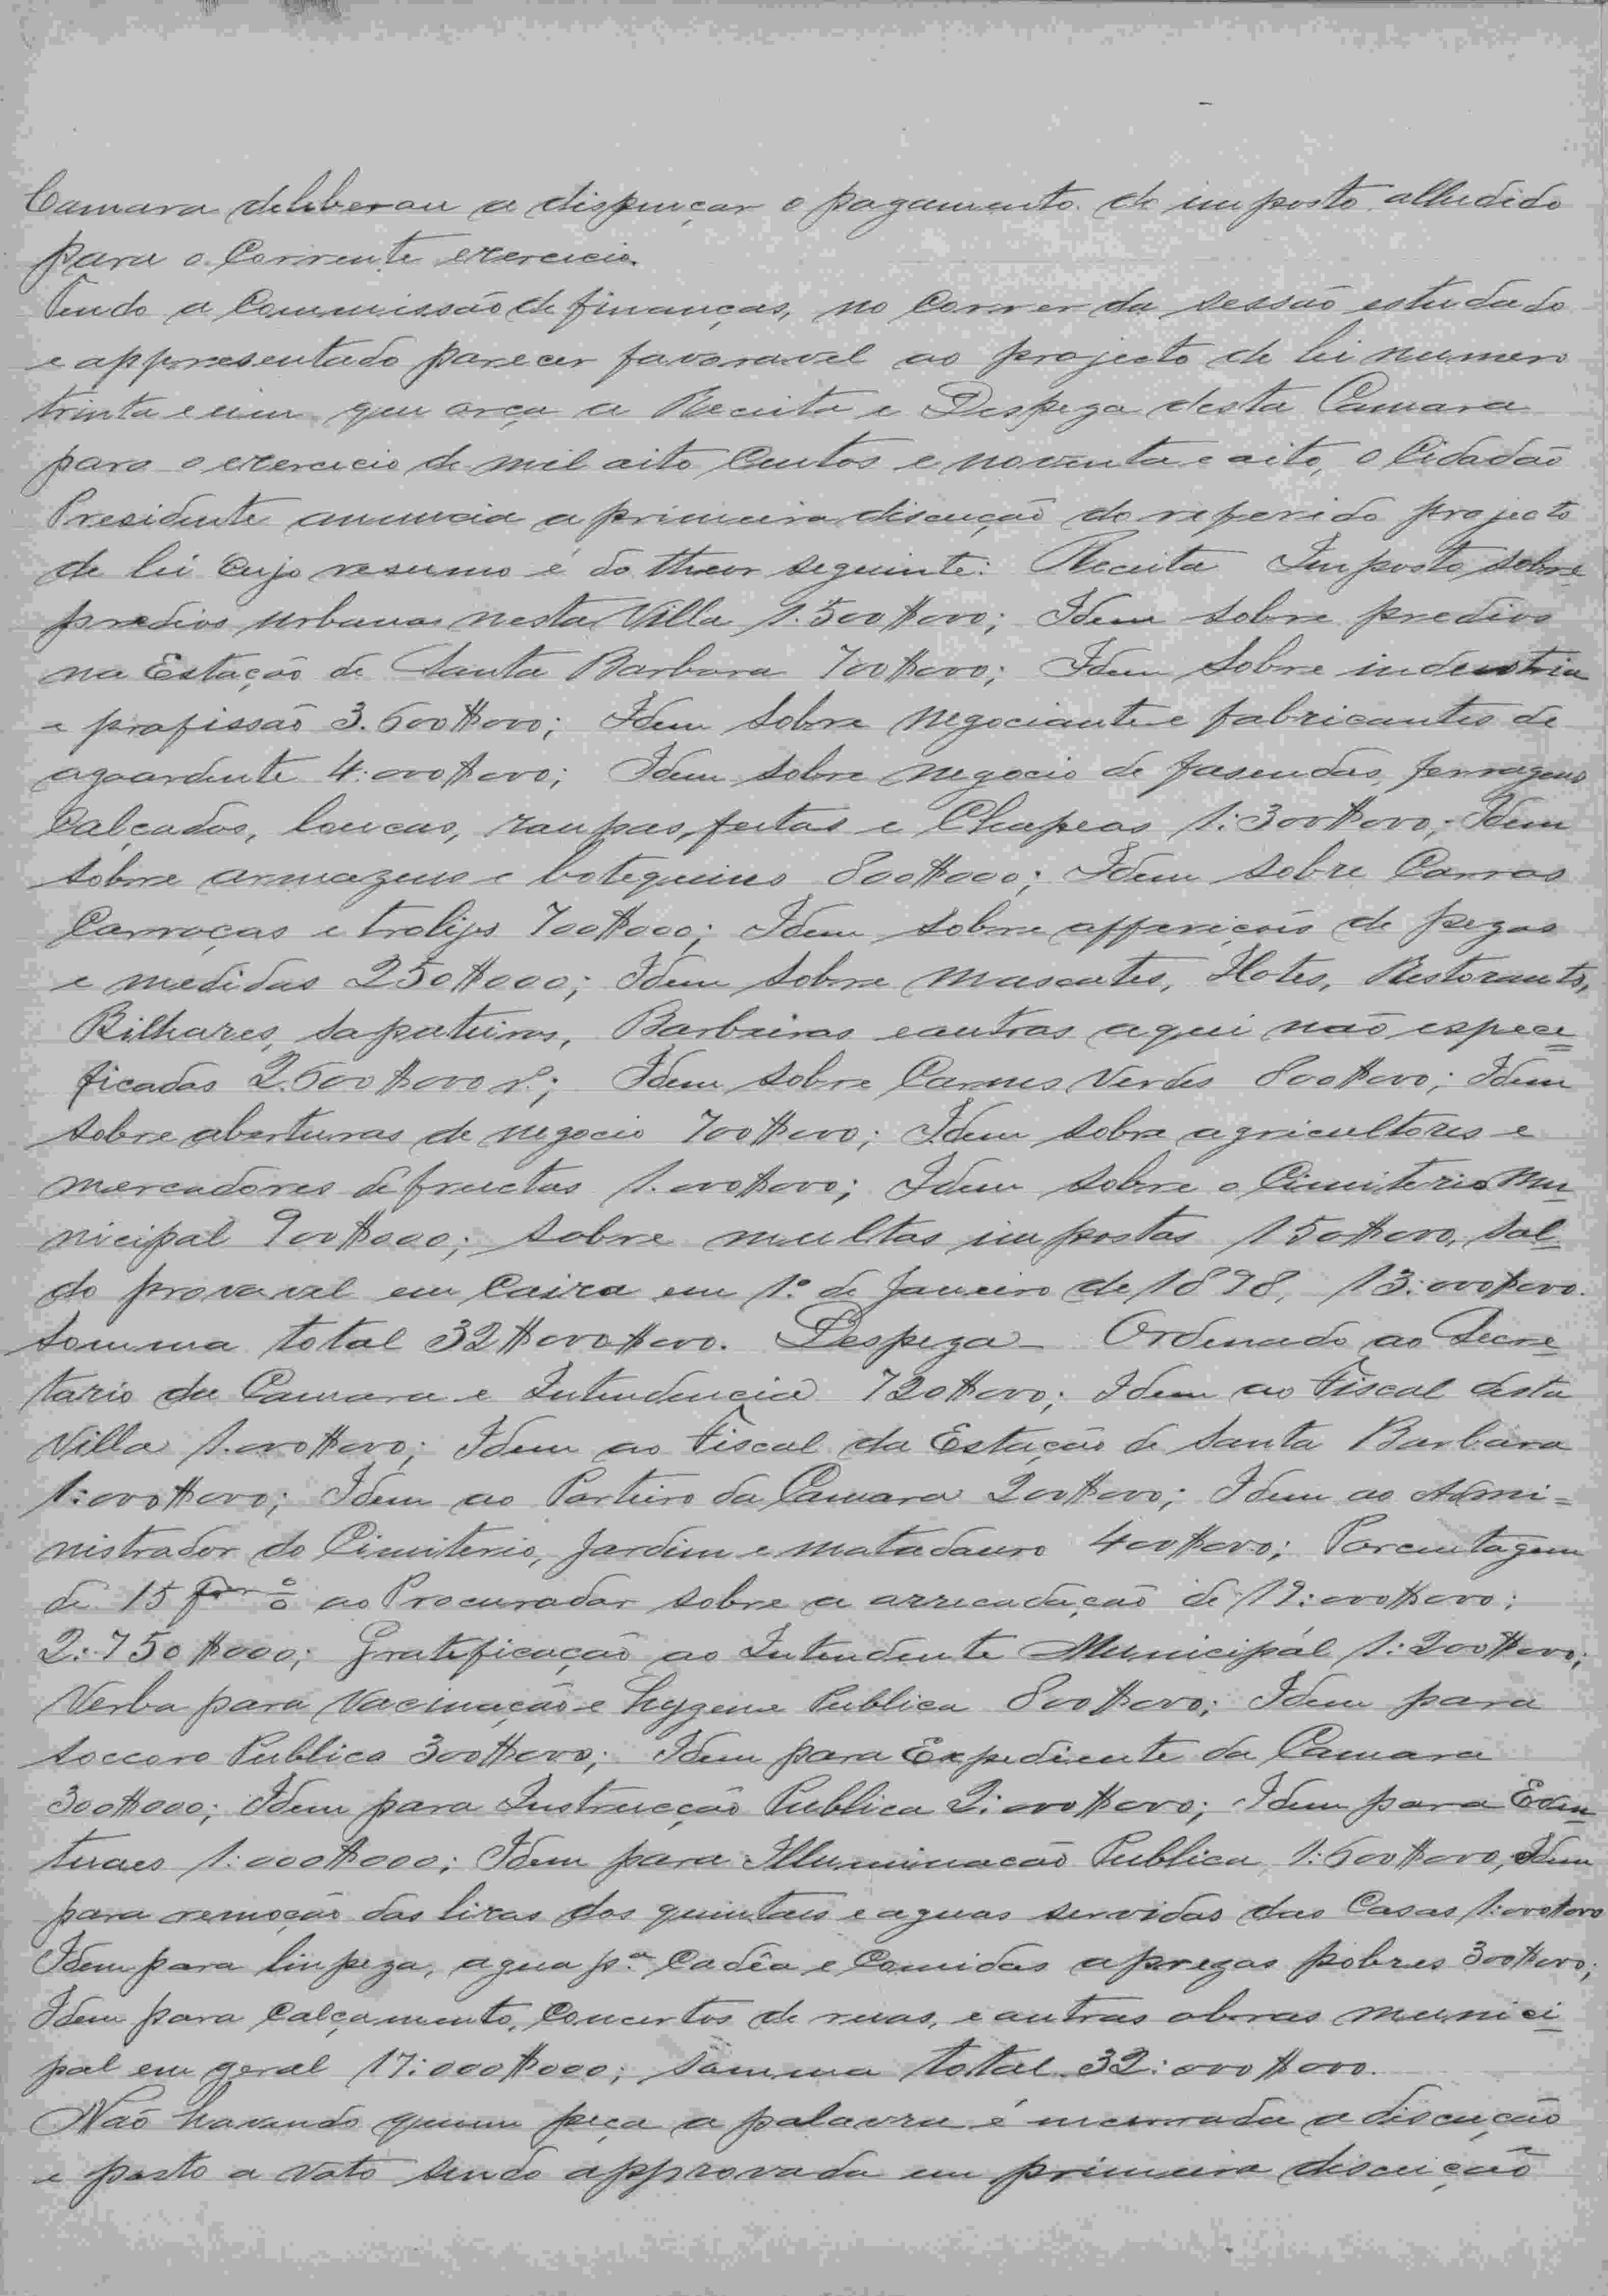 Camara deliberou a dispençar o pagamento do imposto alludido
para o Corrente exercicio.
Tendo a Commissão de finanças, no Correr da sessão estudado
e appresentado parecer favoravel ao projecto de lei numero
trinta e um que orça a Receita e Despeza desta Camara
para o exercicio de mil oito Centos e noventa e oito, o Cidadão
Presidente anuncia a primeira discução do referido projecto
de lei Cujo resumo é do theor seguinte: Receita Imposto sobre
predios urbanos nesta Villa 1.500$000; Idem sobre predios
na Estação de Santa Barbara 700$000; Idem sobre industria
e profissão 3.600$000; Idem sobre negociante e fabricantes de
agoardente 4:000$000; Idem sobre negocio de fasendas, ferragens
Calçados, loucas, roupas, feitas e Chapeos 1:300$000; Idem
sobre armazens e botequins 800$000; Idem sobre Carros
Carroças e trolys 700$000; Idem sobre afferiçois de pezos
e medidas 250$000; Idem sobre mascates, Hotes, Restorants,
Bilhares, sapateiros, Barbeiros e outras aqui não espece=
ficadas 2.600$000 r.s; Idem sobre Carnes Verdes 800$000; Idem
sobre aberturas de negocio 700$000; Idem sobre agricultores e
mercadores de fructas 1.000$000; Idem sobre o Cimiterio Mu=
nicipal 900$000; sobre multas impostas 150$000, Sal=
do provavel em Caixa em 1.º de Janeiro de 1898, 13:000$000.
Somma total 32$000$000. Despeza - Ordenado ao Secre=
tario da Camara e Intendencia 720$000; Idem ao Fiscal desta
Villa 1.000$000; Idem ao Fiscal da Estação de Santa Barbara
1:000$000; Idem ao Porteiro da Camara 200$000; Idem ao Admi=
nistrador do Cimiterio, Jardim e matadouro 400$000; Porcentagem
de 15 por % ao Procurador sobre a arrecadação de 19:000$000;
2:750$000; Gratificação ao Intendente Municipal 1:200$000;
Verba para Vacinação e hygene Publica 800$000; Idem para
soccoro Publico 300$000; Idem para Expediente da Camara
300$000; Idem para Instrucção Publica 2:000$000; Idem para Even=
tuaes 1:000$000; Idem para Illuminacão Publica 1:600$000, Idem
para remoção das lixas dos quintaes e aguas servidas das Casas 1:000$000
Idem para limpeza, agua p.a Cadêa e Comidas a prezos pobres 300$000;
Idem para Calçamento, Concertos de ruas, e outras obras munici=
pal em geral 17:000$000; Somma total 32:000$000.
Não havendo quem peça a palavra é incerrada a discução
e posto a voto sendo approvada em primeira discução